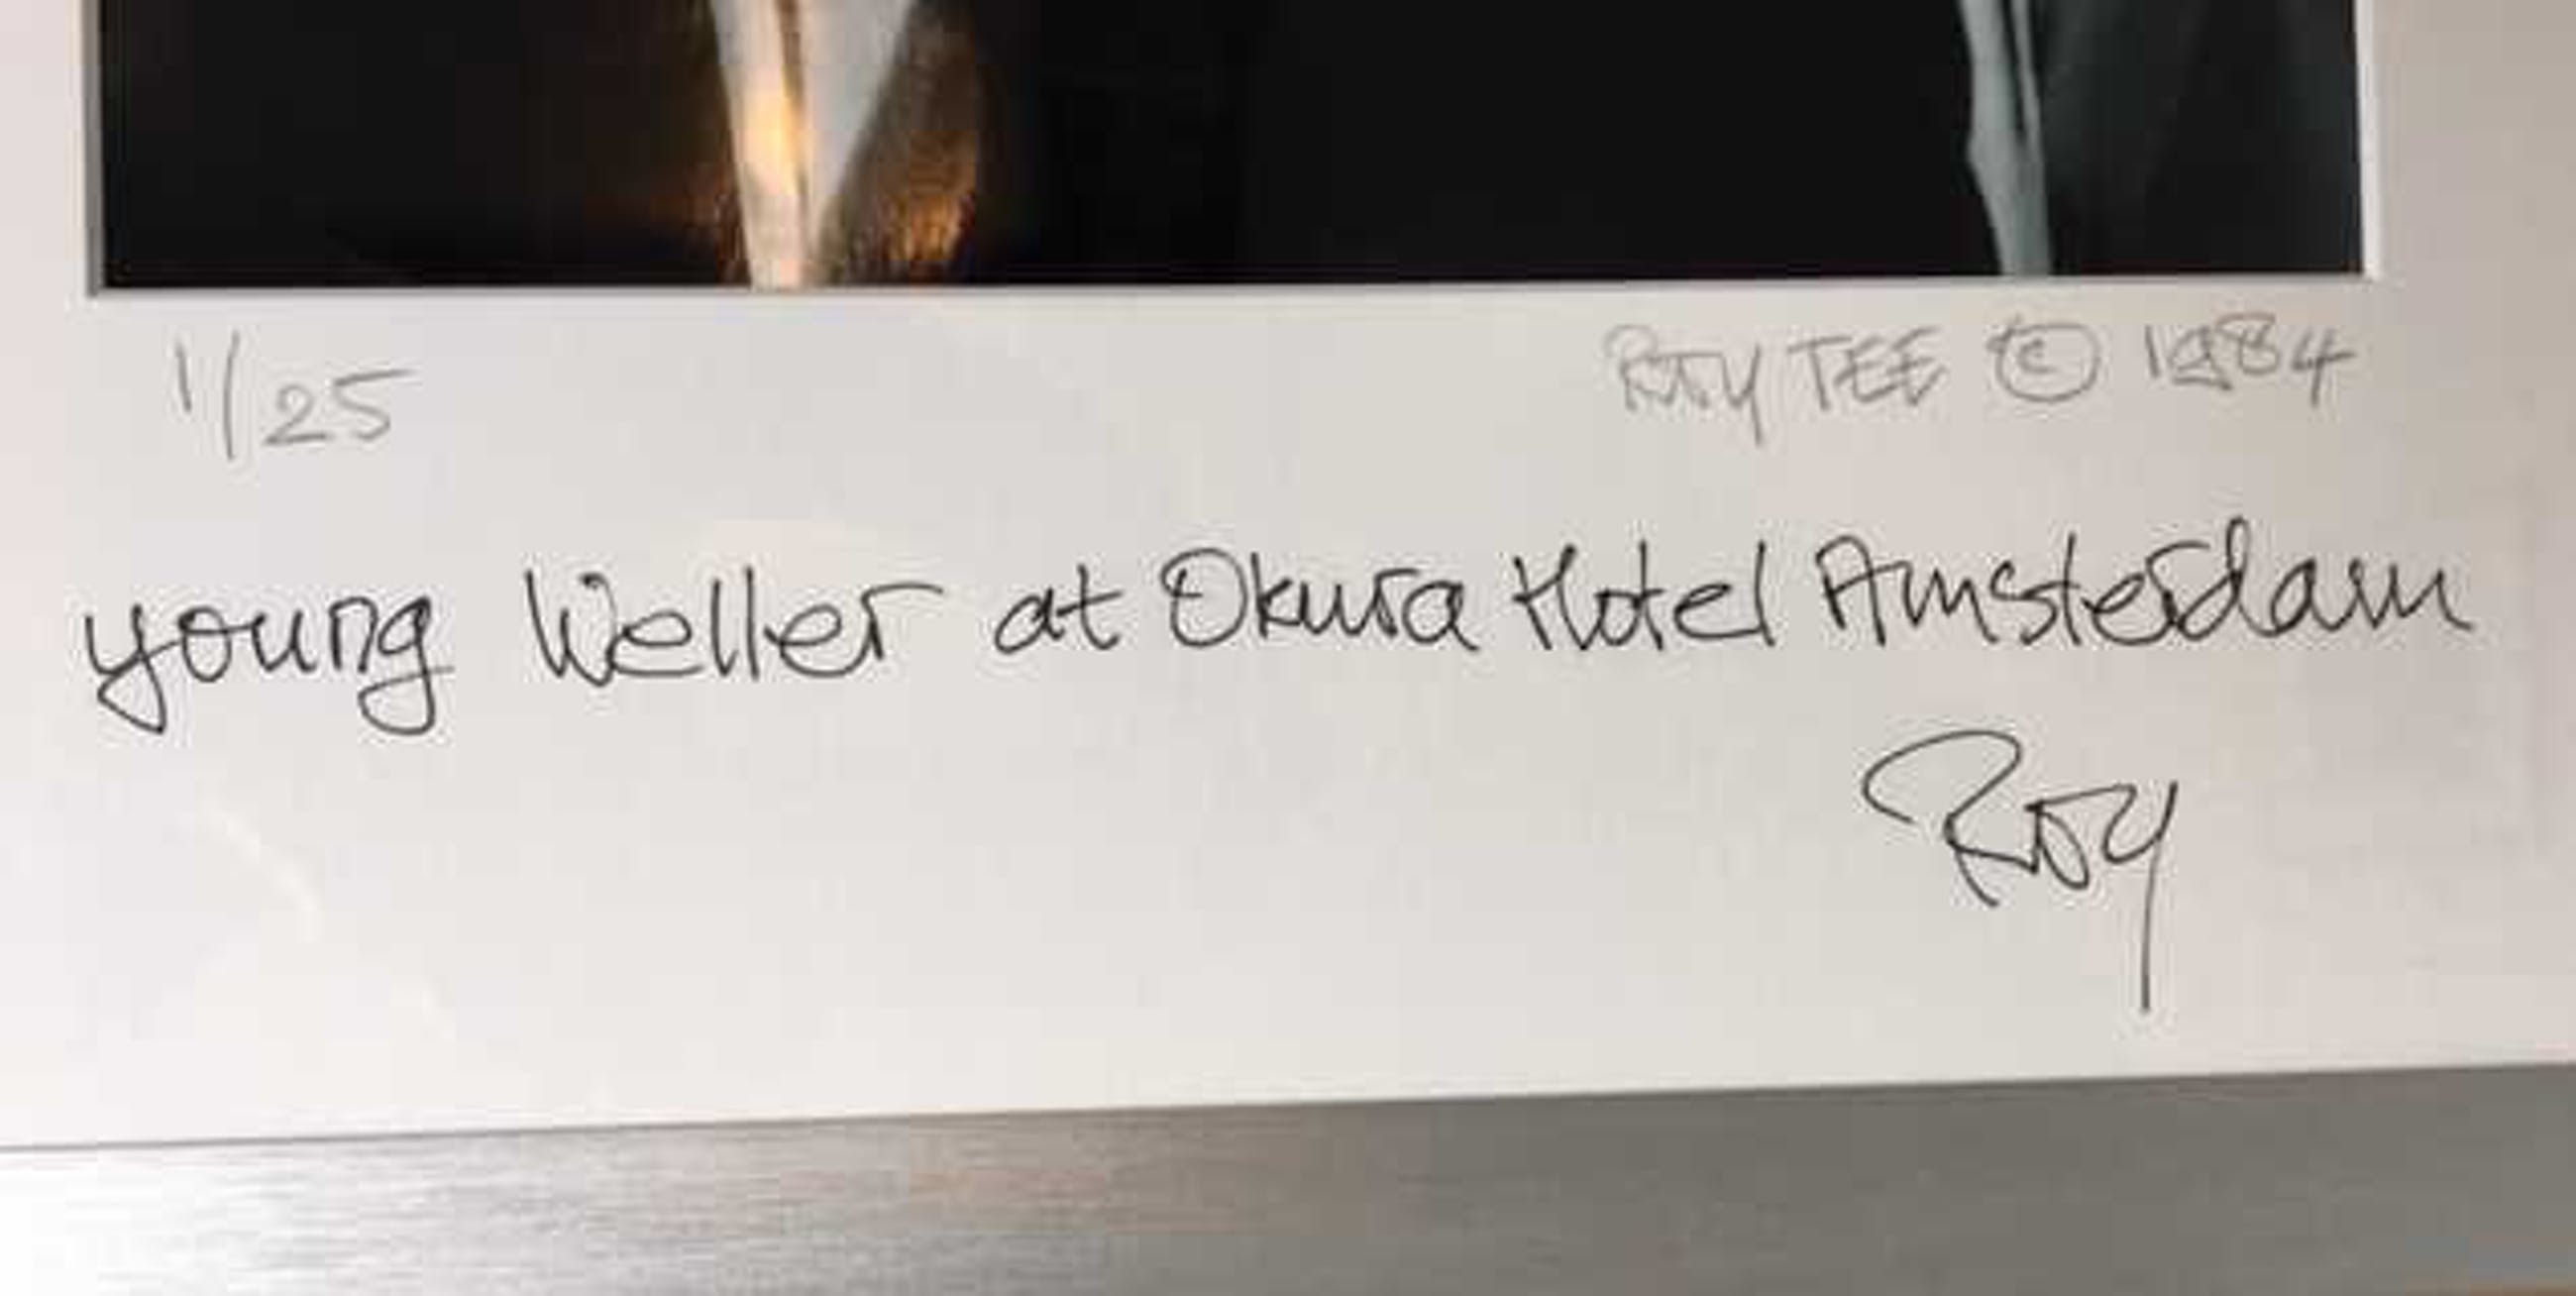 1/25 ROY TEE © 1984
young Weller at Okura Hotel Amsterdam
Roy